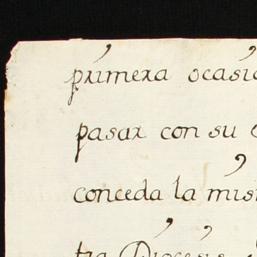 primera ocasió
pasar con su
conceda la mis
tra Diocesis